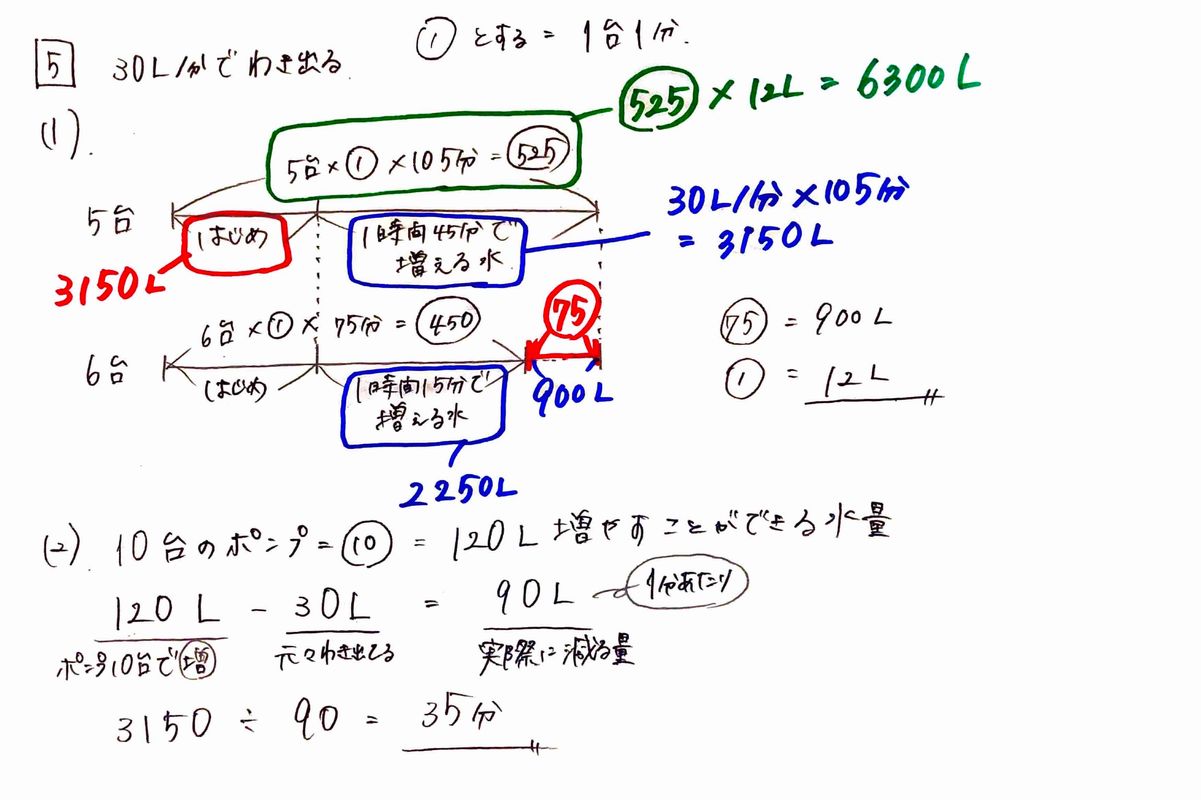 5 30L/分でわき出る ①とする = 1台1分.
(1).
525 × 12L = 6300L
5台×①×105分=525
5台
はじめ
1時間45分で
増える水
30L/分×105分
= 3150L
3150L
6台×①×75分=450
75
6台
はじめ
1時間15分で
増える水
900L
2250L
75 = 900L
① = 12L
(2). 10台のポンプ=⑩ = 120L 増やすことができる水量
120L - 30L = 90L 1分あたり
ポンプ10台で増 元々わき出てる 実際に減る量
3150 ÷ 90 = 35分